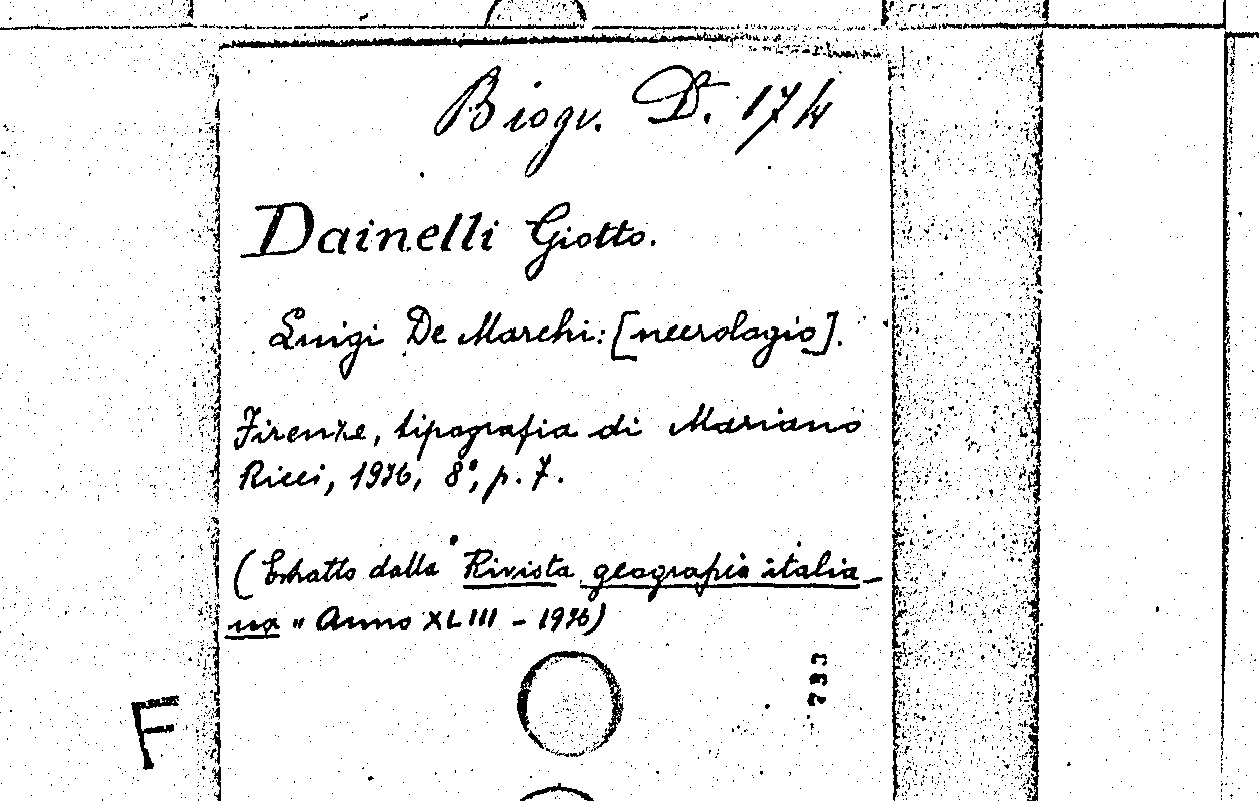 Biogr. D. 174
Dainelli Giotto.
Luigi De Marchi: [necrologio].
Firenze, tipografia di Mariano
Ricci, 1936, 8°, p. 7.
(Estratto dalla "Rivista geografia italia-
na" Anno XLIII - 1936)
733
F